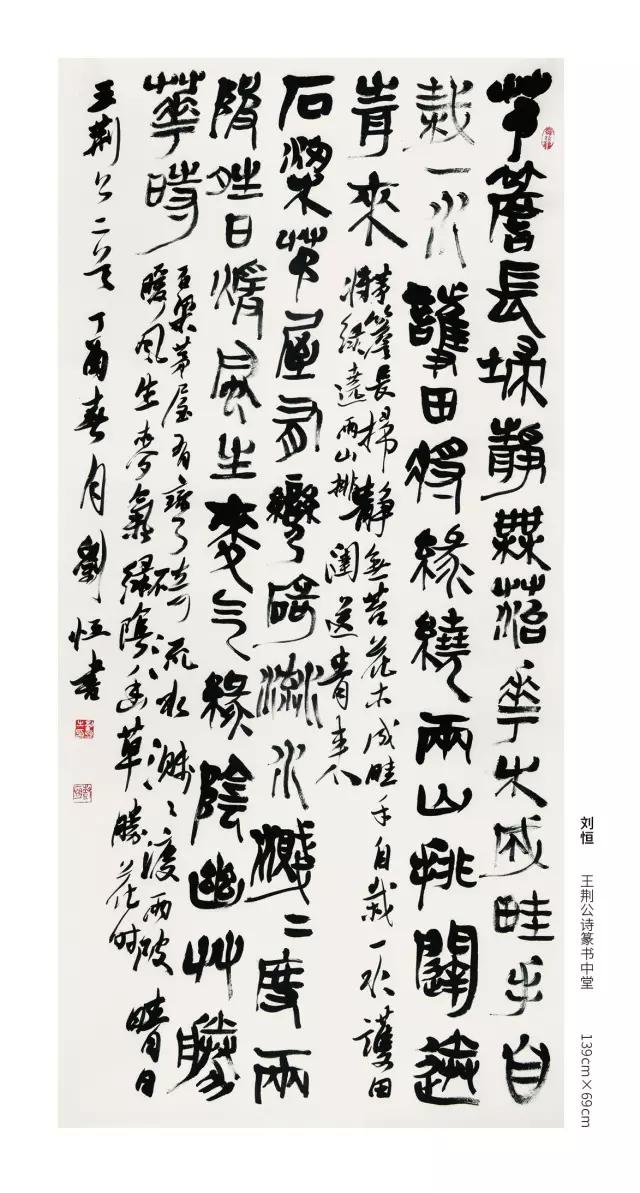 茅簷長埽靜無苔華木成畦手自
栽一水護田將綠繞兩山排闥送
青來
茅簷長掃靜無苔花木成畦手自栽一水護田
將綠遶兩山排闥送青來
石梁茅屋有彎碕流水濺二度兩
陂晴日暖風生麥气綠陰幽艸勝
華時
石梁茅屋有彎碕流水濺〻渡兩陂晴日
暖風生麥氣綠陰幽草勝花時
王荊公二首丁酉春月劉恒書
刘恒 王荆公诗篆书中堂 139cm×69cm